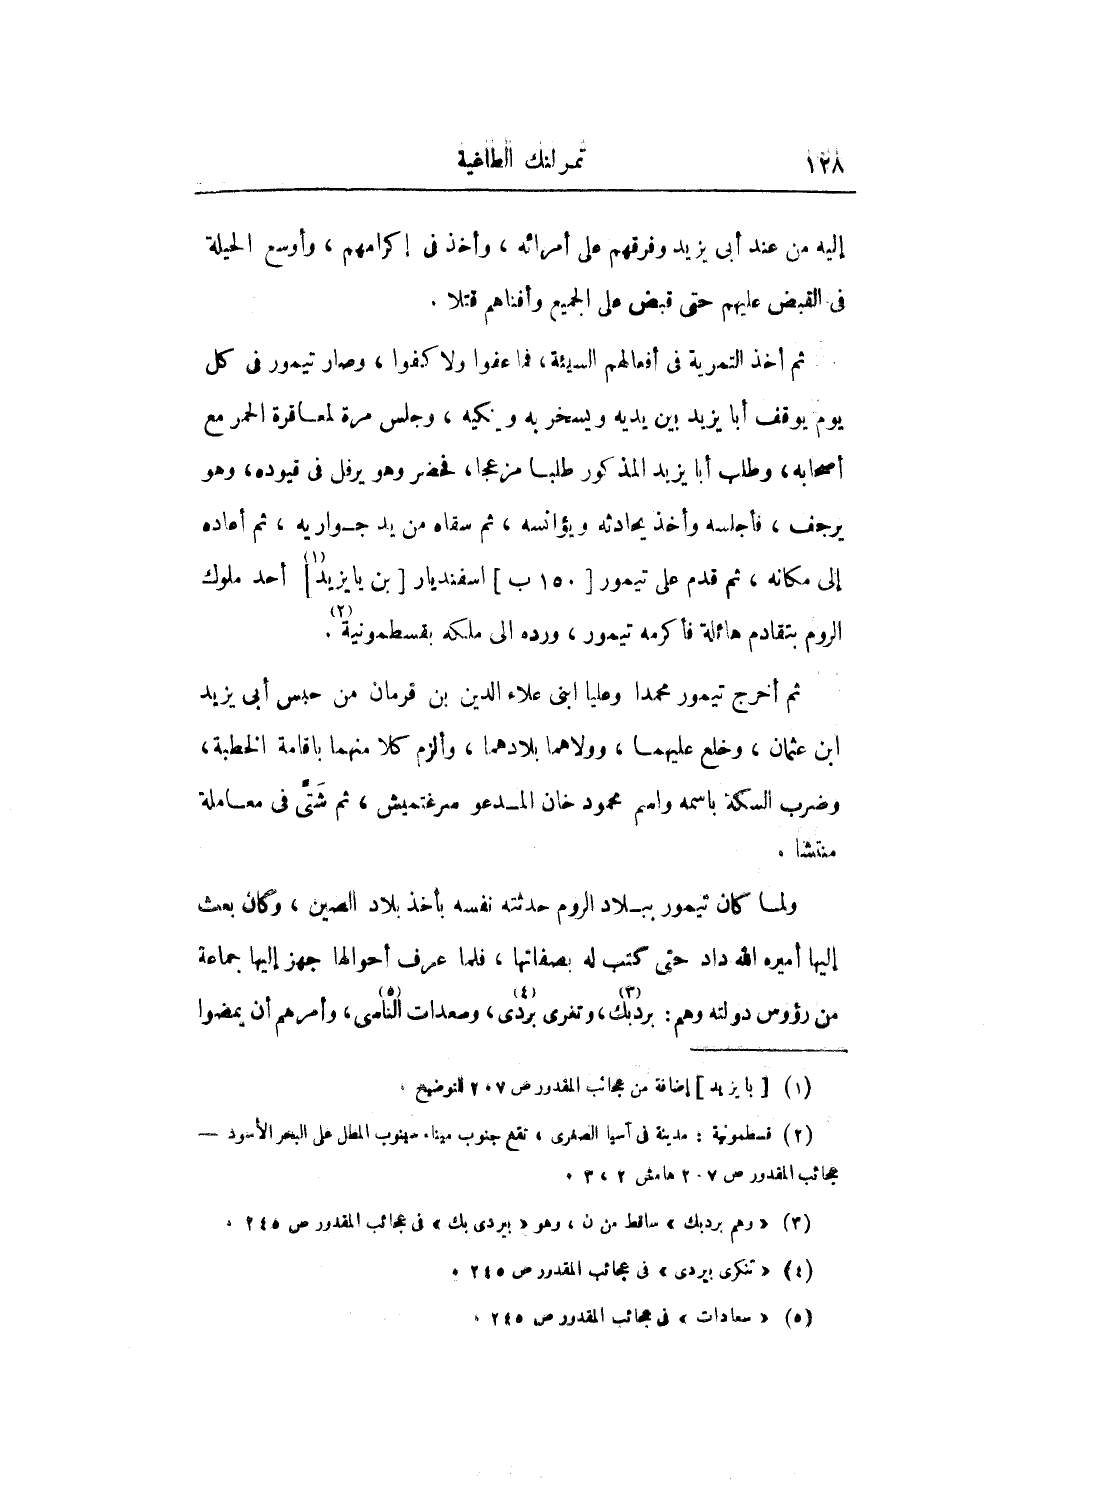 ١٢٨ تمرلنك الطاغية
إليه من عند أبى يزيد وفرقهم على أمرائه ، وأخذ فى إكرامهم ، وأوسع الحيلة
فى القبض عليهم حتى قبض على الجميع وأفناهم قتلا .
ثم أخذ التمرية فى أفعالهم السيئة، فما عفوا ولا كفوا ، وصار تيمور فى كل
يوم يوقف أبا يزيد بين يديه ويسخر به وينكيه ، وجلس مرة لمعاقرة الخمر مع
أصحابه، وطلب أبا يزيد المذكور طلبا مزعجا، فحضر وهو يرفل فى قيوده، وهو
يرجف ، فأجلسه وأخذ يحادثه ويؤانسه ، ثم سقاه من يد جواريه ، ثم أعاده
إلى مكانه ، ثم قدم على تيمور [ ١٥٠ ب ] اسفنديار [ بن بايزيد ](١) أحد ملوك
الروم بتقادم هائلة فأكرمه تيمور ، ورده الى ملكه بقسطمونية(٢) .
ثم أخرج تيمور محمدا وعليا ابنى علاء الدين بن قرمان من حبس أبى يزيد
ابن عثمان ، وخلع عليهما ، وولاهما بلادهما ، وألزم كلا منهما باقامة الخطبة ،
وضرب السكة باسمه واسم محمود خان المدعو صرغتميش ، ثم شَتَّى فى معاملة
منتشا .
ولما كان تيمور ببلاد الروم حدثته نفسه بأخذ بلاد الصين ، وكان بعث
إليها أميره الله داد حتى كتب له بصفاتها ، فلما عرف أحوالها جهز إليها جماعة
من رؤوس دولته وهم : بردبك(٣)، وتغرى بردى(٤)، وصعدات النامى(٥)، وأمرهم أن يمضوا
(١) [ بايزيد ] إضافة من عجائب المقدور ص ٢٠٧ للتوضيح .
(٢) قسطمونية : مدينة فى آسيا الصغرى ، تقع جنوب ميناء سينوب المطل على البحر الأسود —
عجائب المقدور ص ٢٠٧ هامش ٢ ، ٣ .
(٣) « وهم بردبك » ساقط من ن ، وهو « بيردى بك » فى عجائب المقدور ص ٢٤٥ .
(٤) « تنكرى بيردى » فى عجائب المقدور ص ٢٤٥ .
(٥) « سعادات » فى عجائب المقدور ص ٢٤٥ .